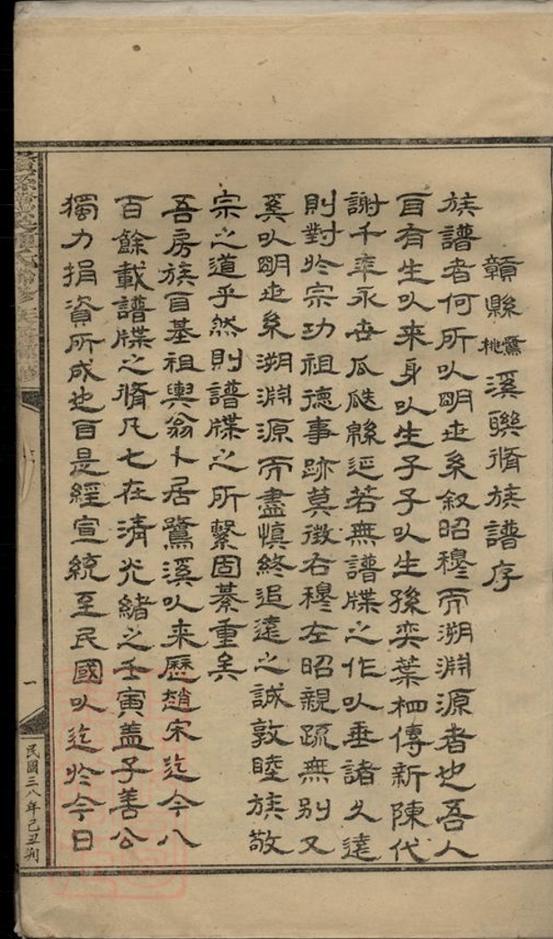 贛縣鷺桃溪聯脩族譜序
族譜者何所以明世系敘昭穆而溯淵源者也吾人
自有生以來身以生子子以生孫奕葉相傳新陳代
謝千年永世瓜瓞綿延若無譜牒之作以垂諸久遠
則對於宗功祖德事跡莫徵右穆左昭親疏無別又
奚以明世系溯淵源而盡慎終追遠之誠敦睦族敬
宗之道乎然則譜牒之所繫固綦重矣
吾房族自基祖輿翁卜居鷺溪以來歷趙宋迄今八
百餘載譜牒之脩凡七在清光緒之壬寅蓋子善公
獨力捐資所成也自是經宣統至民國以迄於今日
一
民國三八年己丑刊